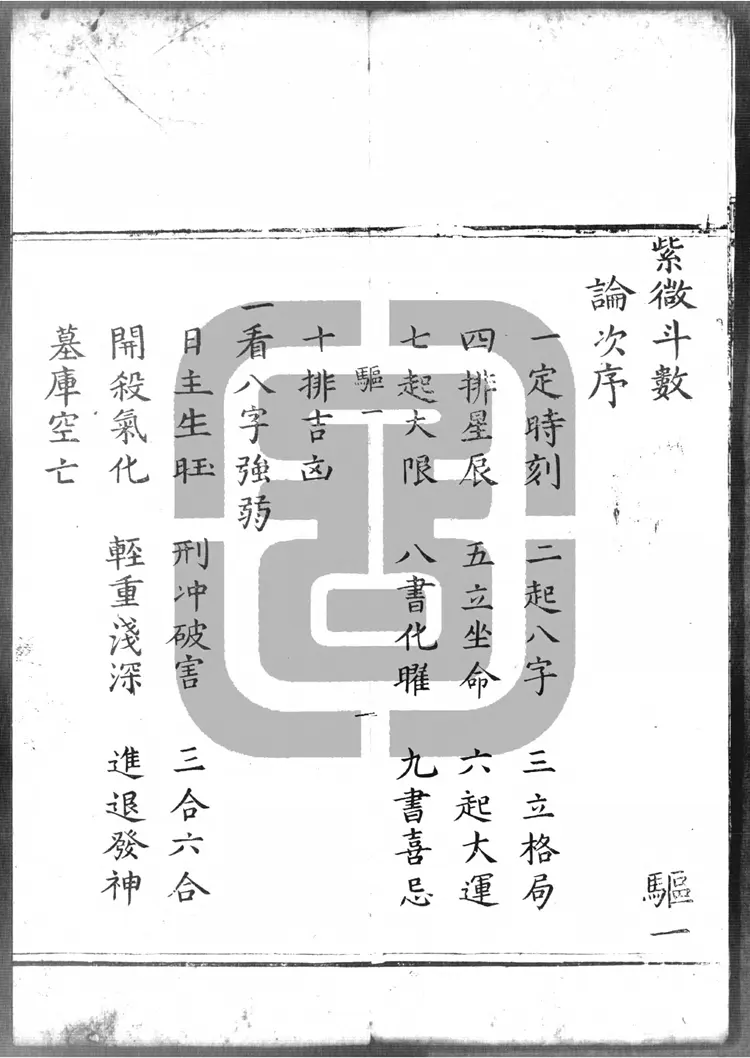 紫微斗數 驅一
論次序
一定時刻 二起八字 三立格局
四排星辰 五立坐命 六起大運
七起大限 八書化曜 九書喜忌
驅一 一
十排吉凶
一看八字強弱
日主生旺 刑冲破害 三合六合
開殺氣化 輊重淺深 進退發神
墓庫空亡